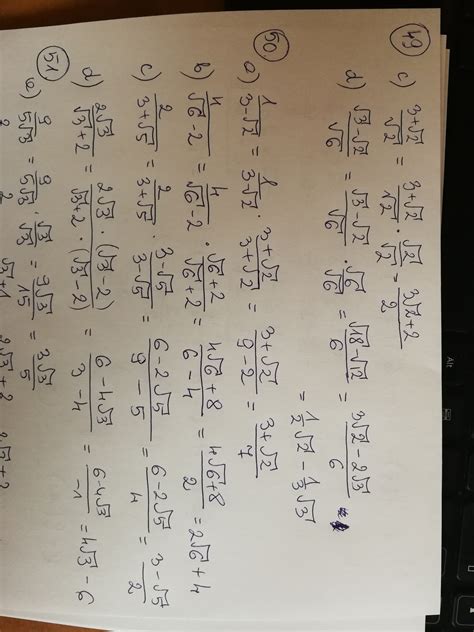 49
c) \frac{3+√2}{√2} = \frac{3+√2}{√2} · \frac{√2}{√2} = \frac{3√2+2}{2}
d) \frac{√3-√2}{√6} = \frac{√3-√2}{√6} · \frac{√6}{√6} = \frac{√18-√12}{6} = \frac{3√2-2√3}{6} =
= \frac{1}{2}√2 - \frac{1}{3}√3
50
a) \frac{1}{3-√2} = \frac{1}{3-√2} · \frac{3+√2}{3+√2} = \frac{3+√2}{9-2} = \frac{3+√2}{7}
b) \frac{4}{√6-2} = \frac{4}{√6-2} · \frac{√6+2}{√6+2} = \frac{4√6+8}{6-4} = \frac{4√6+8}{2} = 2√6+4
c) \frac{2}{3+√5} = \frac{2}{3+√5} · \frac{3-√5}{3-√5} = \frac{6-2√5}{9-5} = \frac{6-2√5}{4} = \frac{3-√5}{2}
d) \frac{2√3}{√3+2} = \frac{2√3 · (√3-2)}{√3+2 · (√3-2)} = \frac{6-4√3}{3-4} = \frac{6-4√3}{-1} = 4√3-6
51
a) \frac{9}{5√3} = \frac{9}{5√3} · \frac{√3}{√3} = \frac{9√3}{15} = \frac{3√3}{5}
Alt